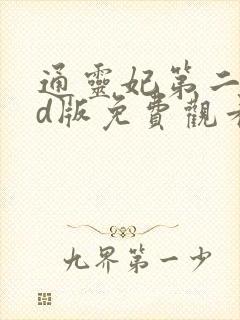 通靈妃第二
d版免費觀看
九界第一少